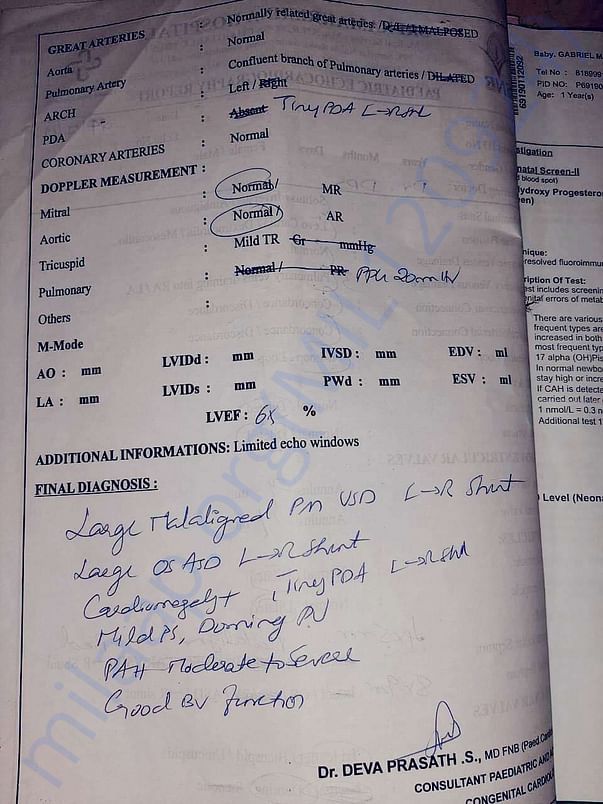 GREAT ARTERIES : Normally related great arteries. /D/L/ MALPOSED
Aorta : Normal
Pulmonary Artery : Confluent branch of Pulmonary arteries / DILATED
ARCH : Left / Right
PDA : Absent Tiny PDA L→R Sht
CORONARY ARTERIES : Normal
DOPPLER MEASUREMENT :
Mitral : Normal / MR
Aortic : Normal / AR
Tricuspid : Mild TR Gr mmHg
Pulmonary : Normal / PR
Others :
M-Mode
AO : mm LVIDd : mm IVSD : mm EDV : ml
LA : mm LVIDs : mm PWd : mm ESV : ml
LVEF : %
ADDITIONAL INFORMATIONS: Limited echo windows
FINAL DIAGNOSIS :
Large Malaligned PM VSD L→R Shunt
Large OS ASD L→R Shunt
Cardiomegaly+, Tiny PDA L→R Sht
Mild PS, Doming PV
PAH Moderate to Severe
Good BV function
Dr. DEVA PRASATH .S., MD FNB (Paed.
CONSULTANT PAEDIATRIC AND
CONGENITAL
Baby. GABRIEL M
Tel No : 818999
PID NO: P69190
Age: 1 Year(s)
69190112092
blood spot)
ydroxy Progestero
resolved fluoroimmu
ription Of Test:
includes screenin
errors of metab
There are various
frequent types are
increased in both
most frequent typ
17 alpha (OH)
In normal newbo
stay high or incre
If CAH is detecte
carried out later
1 nmol/L = 0.3 n
Additional test 1
Level (Neon
milaap.org